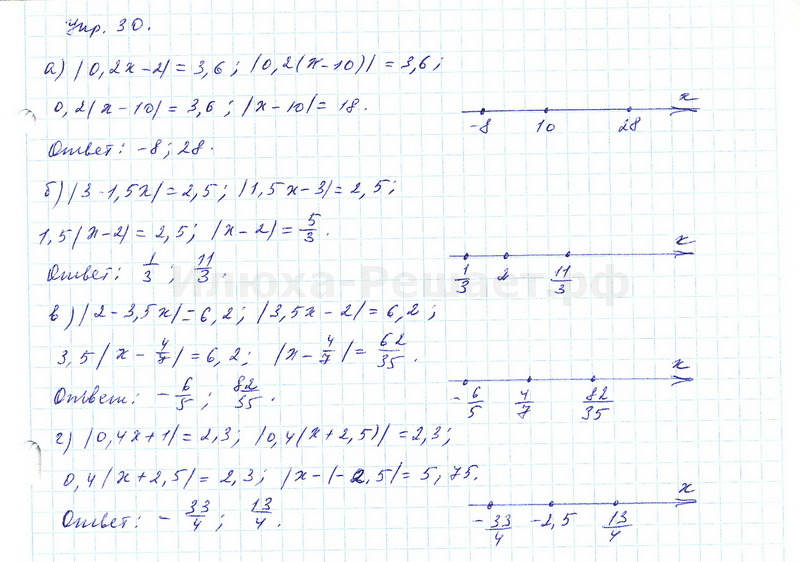 Упр. 30.
а) |0,2x-2|=3,6; |0,2(x-10)|=3,6;
0,2|x-10|=3,6; |x-10|=18.
x
-8 10 28
Ответ: -8; 28.
б) |3-1,5x|=2,5; |1,5x-3|=2,5;
1,5|x-2|=2,5; |x-2|=5/3.
x
1/3 2 11/3
Ответ: 1/3; 11/3.
Илюха-Решает.рф
в) |2-3,5x|=6,2; |3,5x-2|=6,2;
3,5|x-4/7|=6,2; |x-4/7|=62/35.
x
-6/5 4/7 82/35
Ответ: -6/5; 82/35.
г) |0,4x+1|=2,3; |0,4(x+2,5)|=2,3;
0,4|x+2,5|=2,3; |x-(-2,5|=5,75.
x
-33/4 -2,5 13/4
Ответ: -33/4; 13/4.